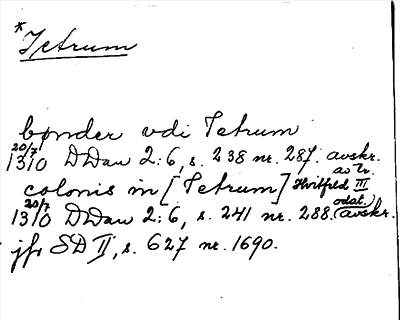 *Tetrum
bønder vdi Tetrum
20/7 1310 DDan 2:6, s. 238 nr. 287. avskr.
av tr.
colonis in [Tetrum] Hvitfeld III
odat.)
20/7 1310 DDan 2:6, s. 241 nr. 288. (avskr.
jfr SD II, s. 627 nr. 1690.